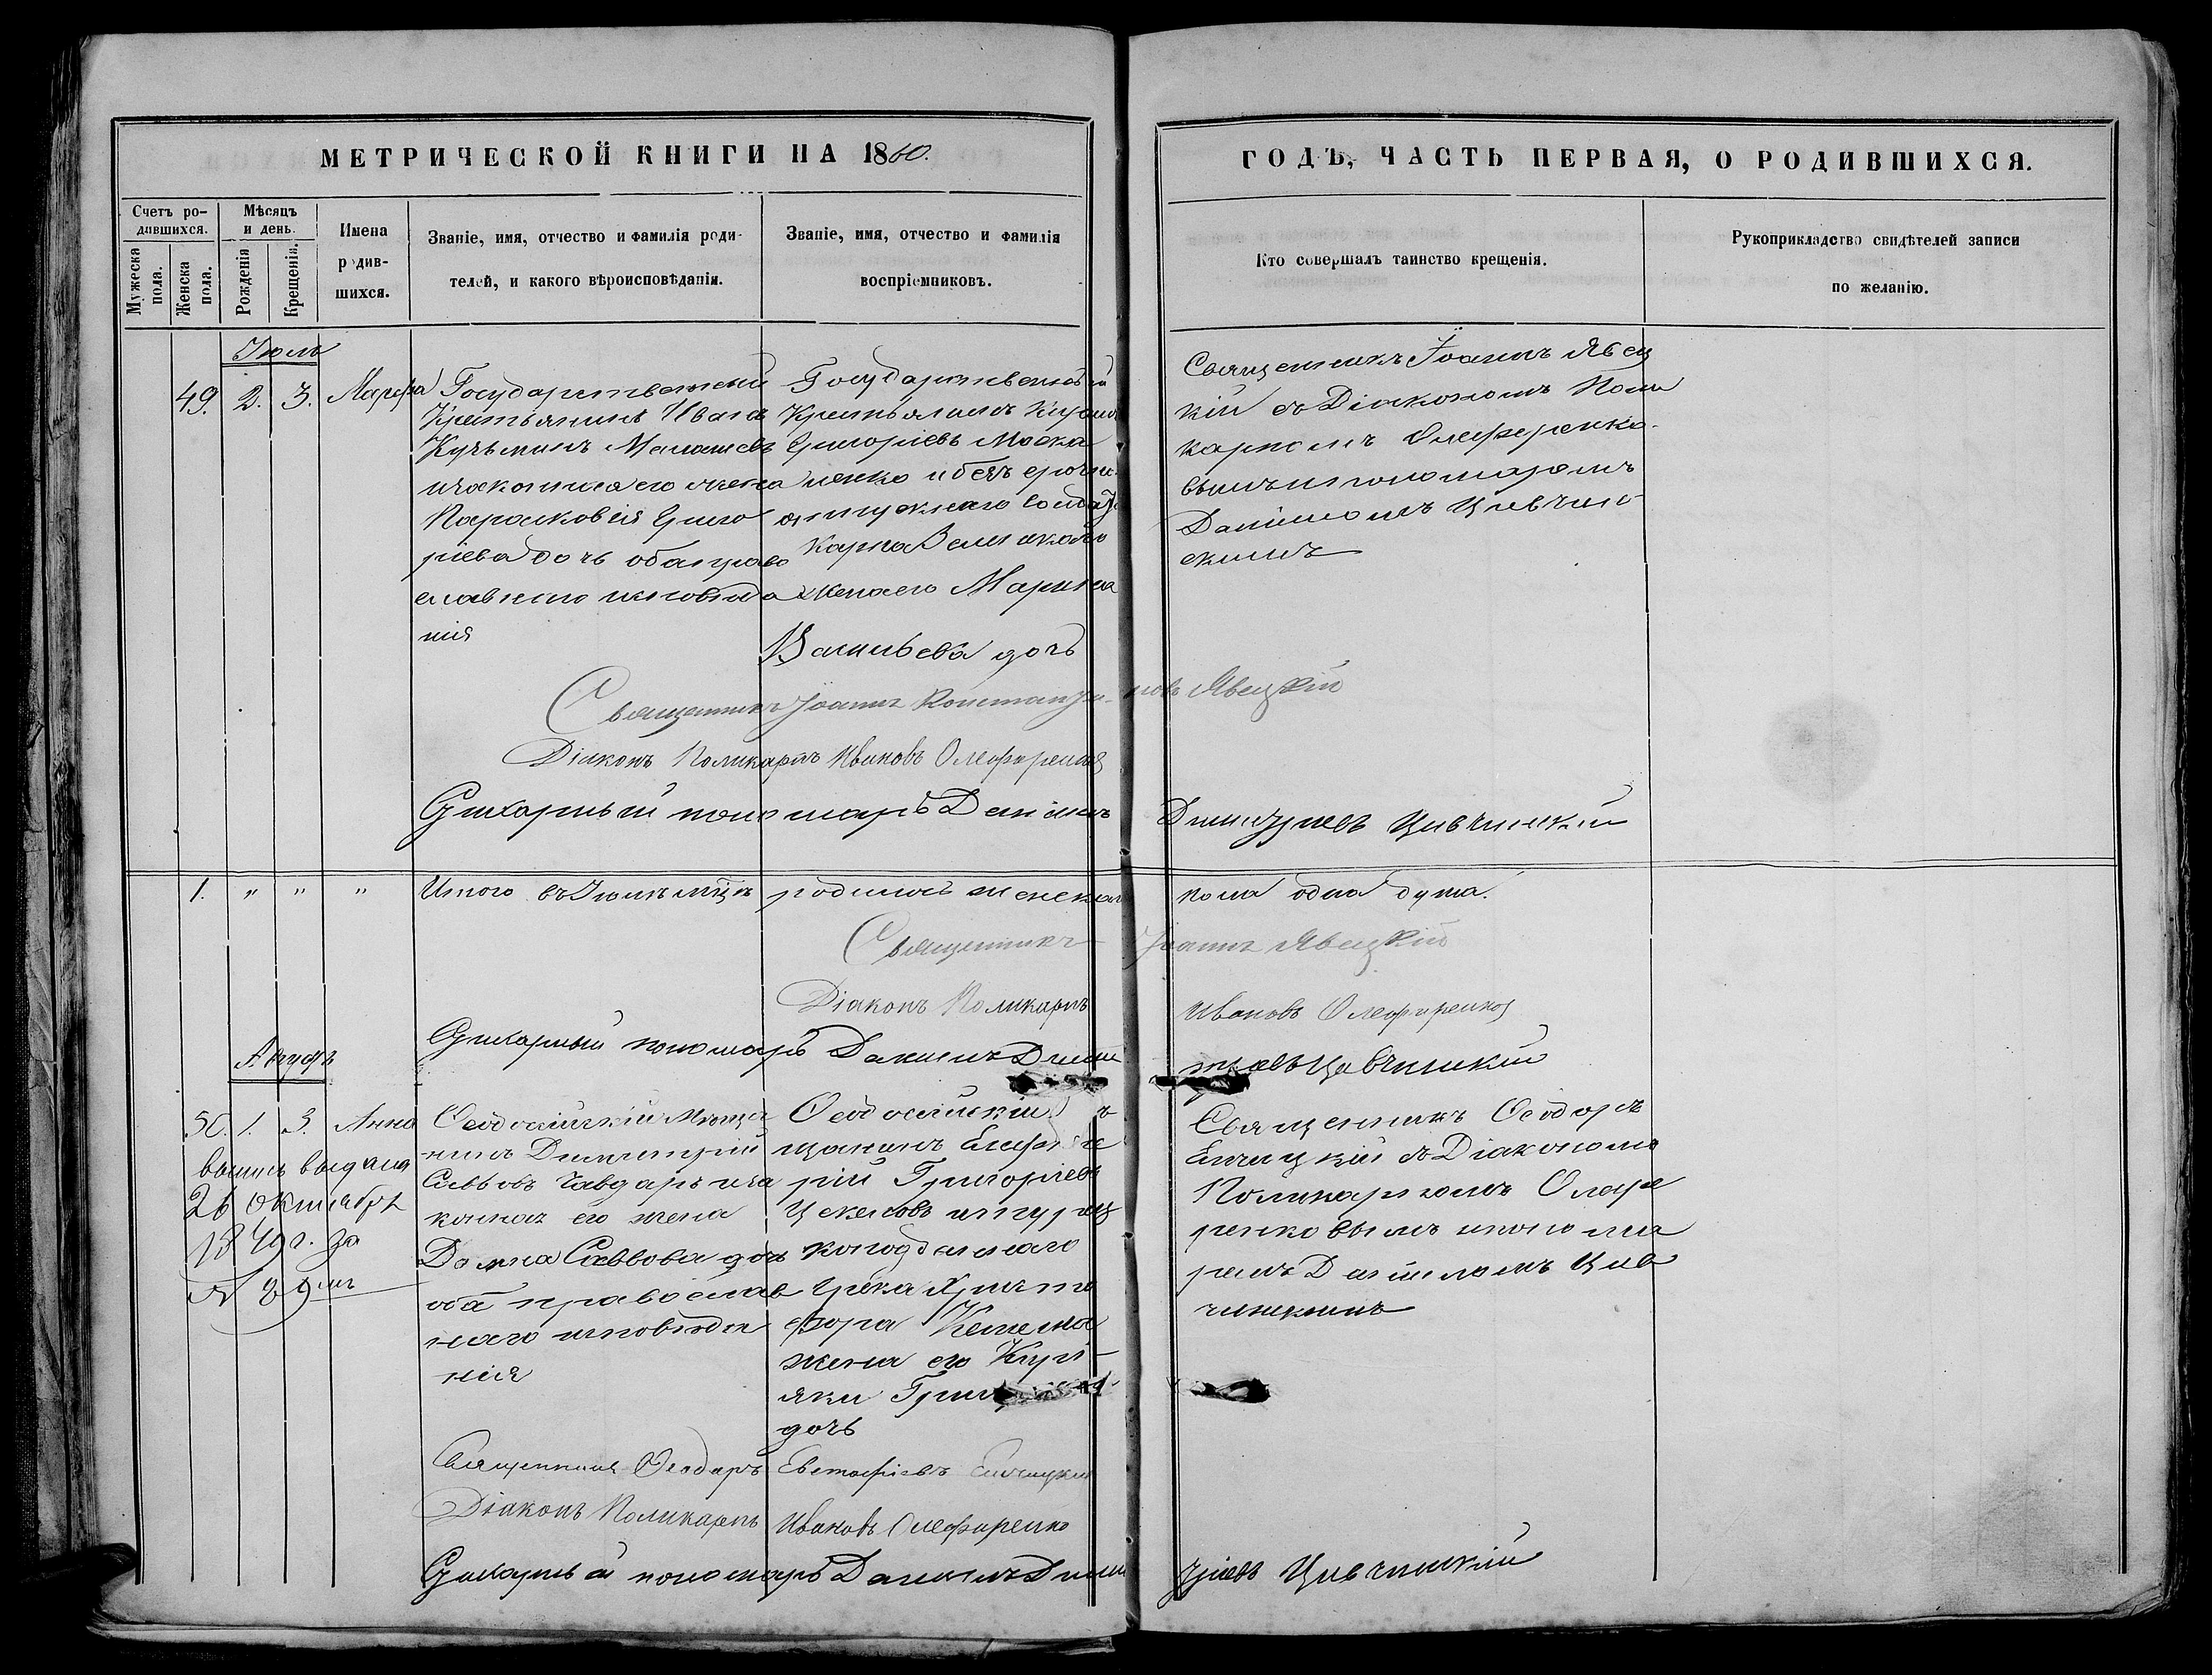 МЕТРИЧЕСКОЙ КНИГИ НА 1860.
ГОДЪ, ЧАСТЬ ПЕРВАЯ, О РОДИВШИХСЯ.
Счетъ ро-
дившихся.
Мужеска пола.
Женска пола.
Мѣсяцъ
и день.
Рожденія
Крещенія.
Имена
родив-
шихся.
Званіе, имя, отчество и фамилія роди-
телей, и какого вѣроисповѣданія.
Званіе, имя, отчество и фамилія
воспріемниковъ.
Кто совершалъ таинство крещенія.
Рукоприкладство свидѣтелей записи
по желанію.
Іюль
49. 2. 3. Марфа
Государственный
Крестьянинъ Иванъ
Кузьминъ
изаконная его жена
Парасковія Григо
ріева дочь оба право
славнаго исповѣда
нія
Государственный
Крестьянинъ
Григорьевъ Моска
ленко и безъ срочно
отпускнаго солдата
Карпа
жена его Марина
Васильева дочь
Священникъ Іоаннъ Явец
кій съ Діакономъ Поли
карпомъ Олефиренко-
вымъ и пономаремъ
Даніиломъ Цивчин
скимъ
Священникъ Іоаннъ Константи-новъ Явецкій
Діаконъ Поликарпъ Ивановъ Олефиренко
Стихарный пономарь Даніилъ Димитріевъ Цивчинскій
1. " " " Итого въ Іюлѣ м҃цѣ родилось женска пола одна душа.
Священникъ Іоаннъ Явецкій
Діаконъ Поликарпъ Ивановъ Олефиренко
Стихарный пономарь Даніилъ Димитріевъ Цивчинскій
Августъ
50. 1. 3. Анна
выпись выдана
26 Октября
1849 г. за
№ 89мъ
Ѳеодосійскій Мѣща
нинъ Димитрій
Саввовъ Чавдаръ иза
конная его жена
Домна Саввова дочь
оба православ
наго исповѣда
нія
Ѳеодосійскій
щанинъ
рій Григорьевъ
и турец
коподданнаго
Грека Христо
фора
жена его Кирі-
яки
дочь
Священникъ Ѳеодоръ
съ Діакономъ
Поликарпомъ Олефи
ренковымъ и понома
ремъ Даніиломъ Цив
чинскимъ
Священникъ Ѳеодоръ Евстафіевъ
Діаконъ Поликарпъ Ивановъ Олефиренко
Стихарный пономарь Даніилъ Димитріевъ Цивчинскій